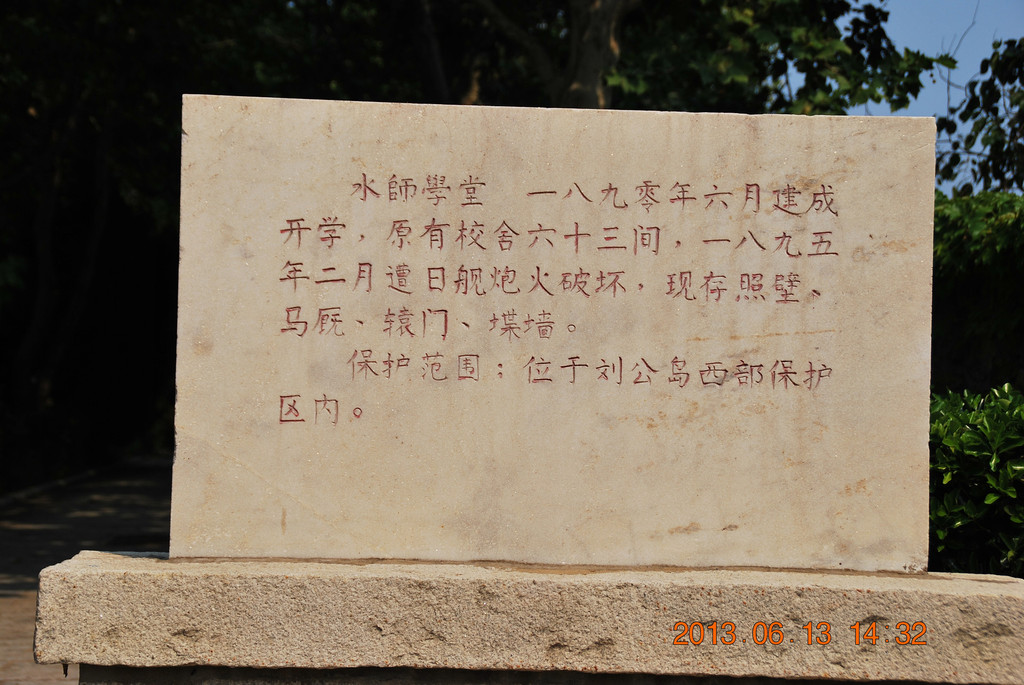 水師學堂 一八九零年六月建成
开学，原有校舍六十三间，一八九五
年二月遭日舰炮火破坏，现存照壁、
马厩、辕门、堞墙。
保护范围：位于刘公岛西部保护
区内。
2013.06.13 14:32